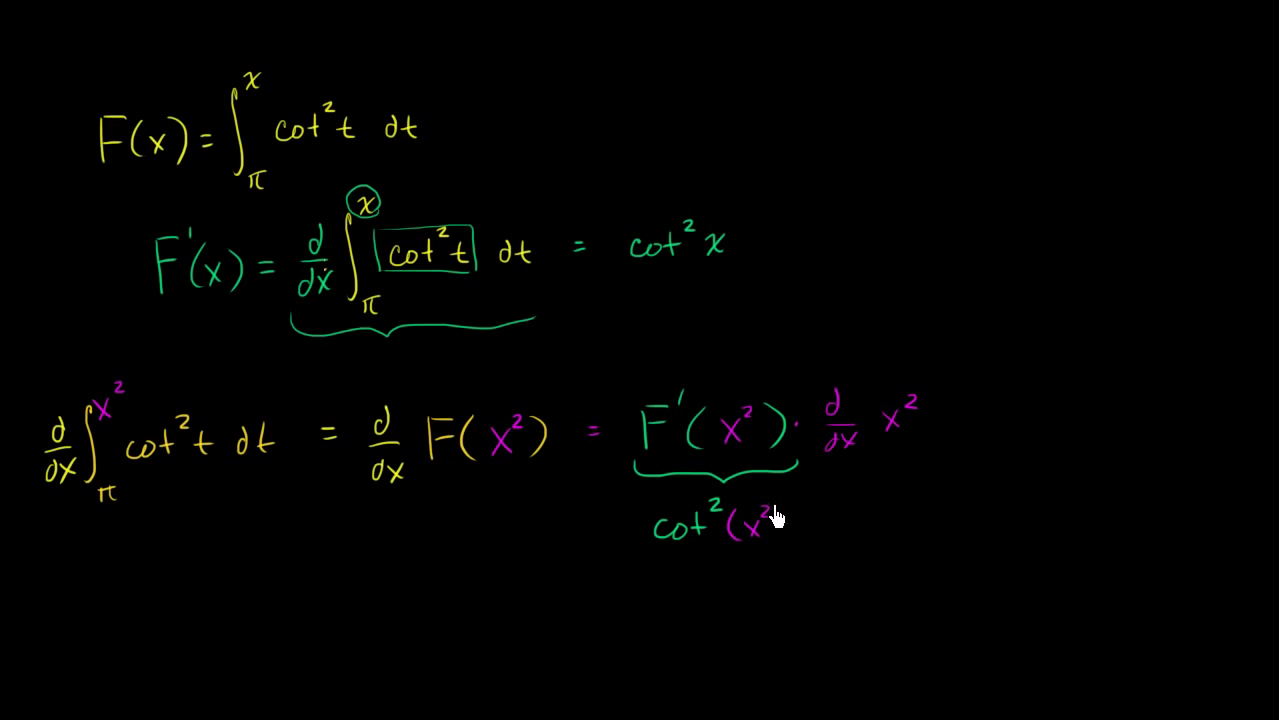 F(x) = ∫_π^x cot² t dt
F'(x) = d/dx ∫_π^x cot² t dt = cot² x
d/dx ∫_π^{x²} cot² t dt = d/dx F(x²) = F'(x²) · d/dx x²
cot² (x²